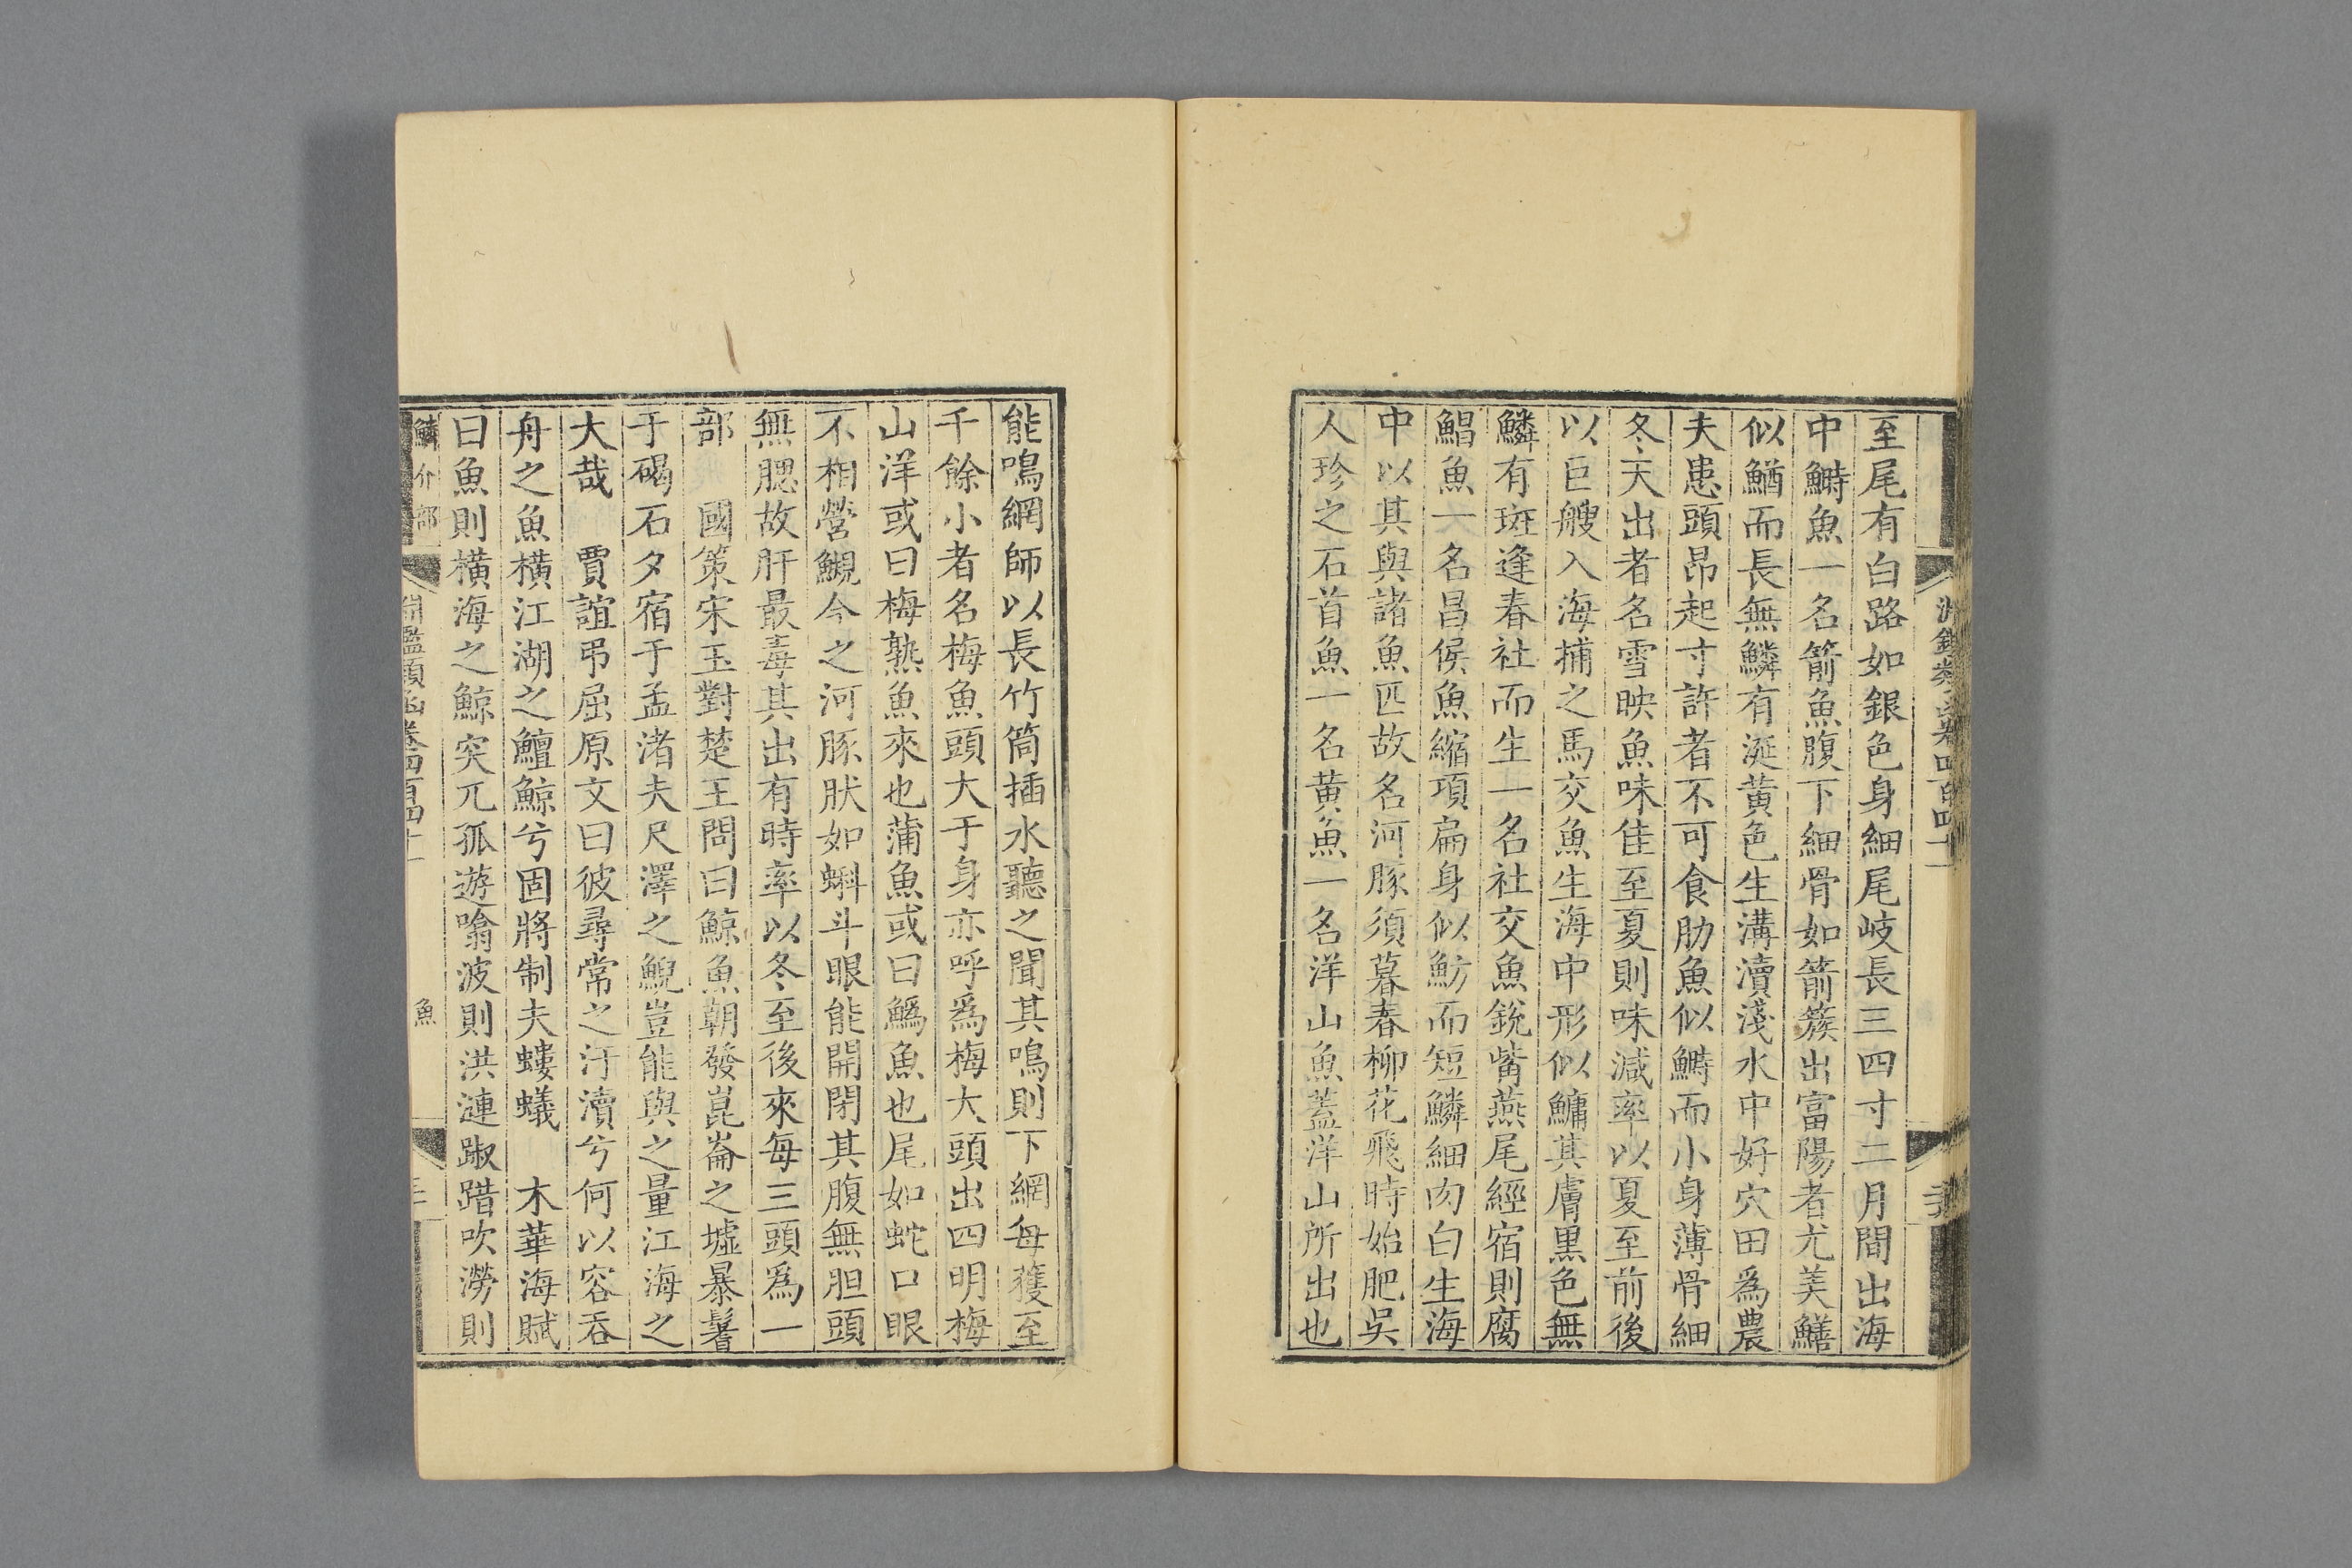 至尾有白路如銀色身細尾岐長三四寸二月間出海
中鰣魚一名箭魚腹下細骨如箭簇出富陽者尤美鱔
似鰌而長無鱗有涎黃色生溝瀆淺水中好穴田爲農
夫患頭昂起寸許者不可食肋魚似鰣而小身薄骨細
冬天出者名雪映魚味佳至夏則味減率以夏至前後
以巨艘入海捕之馬交魚生海中形似鱅其膚黒色無
鱗有斑逢春社而生一名社交魚銳觜燕尾經宿則腐
鯧魚一名昌侯魚縮項扁身似魴而短鱗細肉白生海
中以其與諸魚匹故名河豚須暮春柳花飛時始肥吳
人珍之石首魚一名黃魚一名洋山魚蓋洋山所出也
能鳴網師以長竹筒插水聽之聞其鳴則下網每獲至
千餘小者名梅魚頭大于身亦呼爲梅大頭出四明梅
山洋或曰梅熟魚來也蒲魚或曰鰞魚也尾如蛇口眼
不相營鯢今之河豚狀如蝌斗眼能開閉其腹無胆頭
無腮故肝最毒其出有時率以冬至後來每三頭爲一
部　國策宋玉對楚王問曰鯨魚朝發崑崙之墟暴鬐
于碣石夕宿于孟渚夫尺澤之鯢豈能與之量江海之
大哉　賈誼弔屈原文曰彼尋常之汙瀆兮何以容吞
舟之魚橫江湖之鱣鯨兮固將制夫螻蟻　木華海賦
曰魚則橫海之鯨突兀孤遊噏波則洪漣踧踖吹澇則
鱗介部
淵鑑類函卷四百四十一
魚